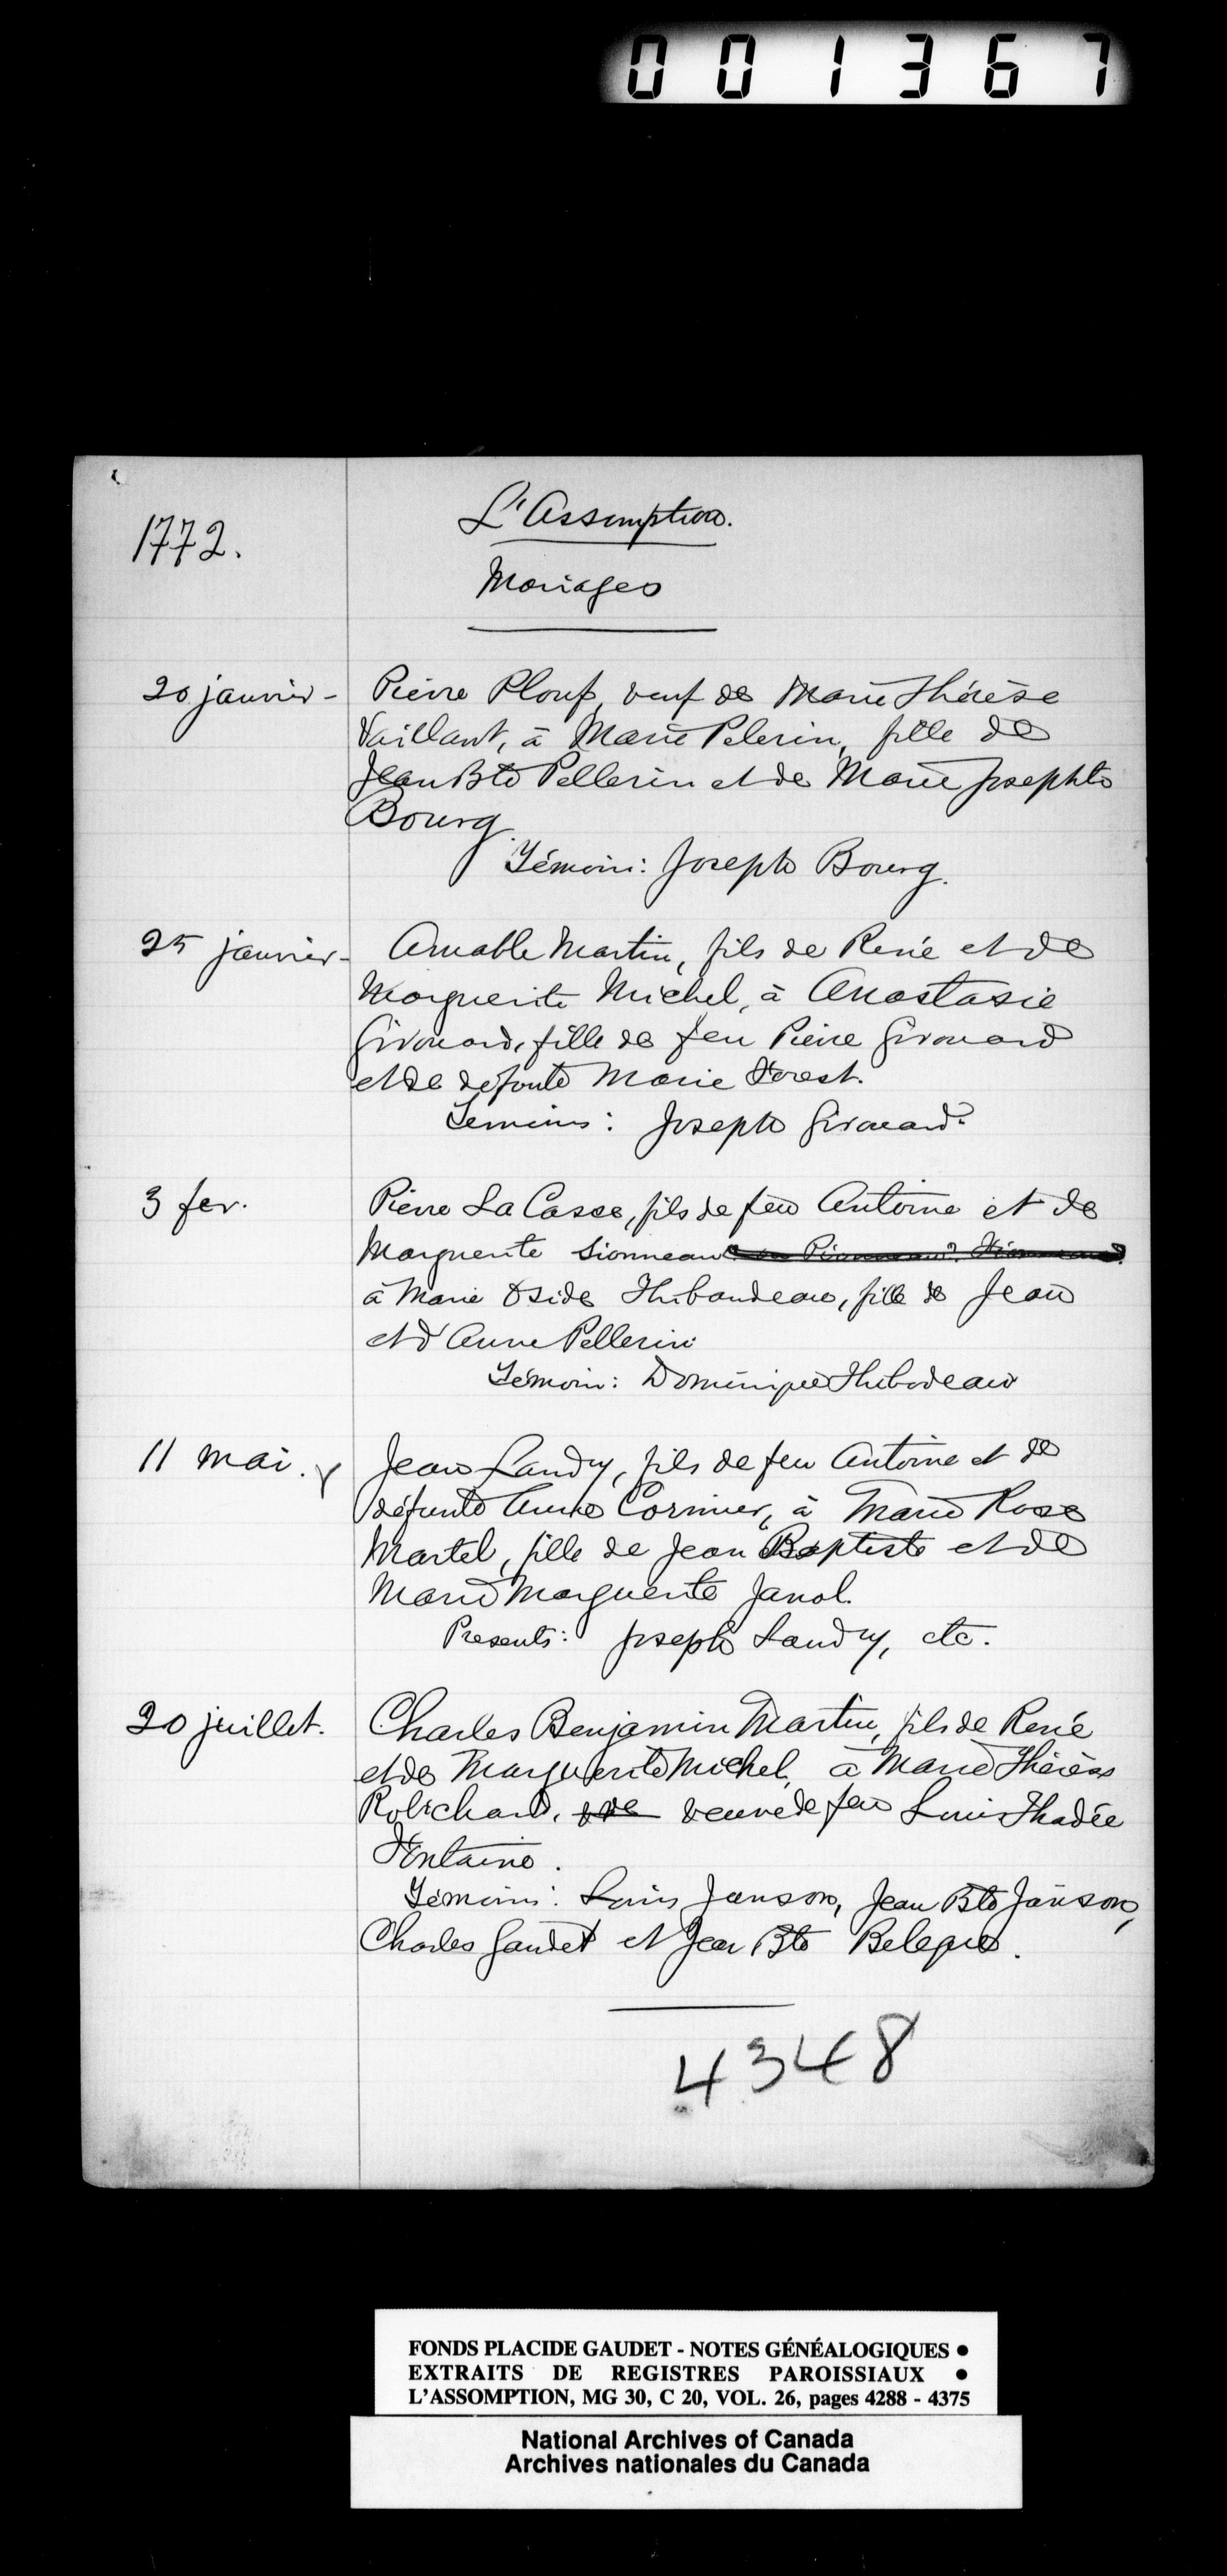 001367
1772.
L'Assomption.
Mariages
20 janvier - Pierre Plouf, veuf de Marie Thérèse
Vaillant, à Marie Pelerin, fille de
Jean Bte Pellerin et de Marie Josephte
Bourg.
Témoin: Joseph Bourg.
25 janvier - Amable Martin, fils de René et de
Marguerite Michel, à Anastasie
Girouard, fille de feu Pierre Girouard
et de defunte Marie Forest.
Temoins: Joseph Girouard.
3 fev. Pierre La Casse, fils de feu Antoine et de
Marguerite Sionneau
à Marie Oside Thibaudeau, fille de Jean
et d'Anne Pellerin
Témoin: Dominique Thibodeau
11 mai. Jean Landry, fils de feu Antoine et de
défunte Anne Cormier, à Marie Rose
Martel, fille de Jean Baptiste et de
Marie Marguerite Janol.
Presents: Joseph Landry, etc.
20 juillet. Charles Benjamin Martin, fils de René
et de Marguerite Michel, à Marie Thérèse
Robichaud, veuve de feu Louis Thadée
Fontaine.
Témoins: Louis Janson, Jean Bte Janson,
Charles Gaudet et Jean Bte
4348
FONDS PLACIDE GAUDET - NOTES GÉNÉALOGIQUES •
EXTRAITS DE REGISTRES PAROISSIAUX •
L'ASSOMPTION, MG 30, C 20, VOL. 26, pages 4288 - 4375
National Archives of Canada
Archives nationales du Canada